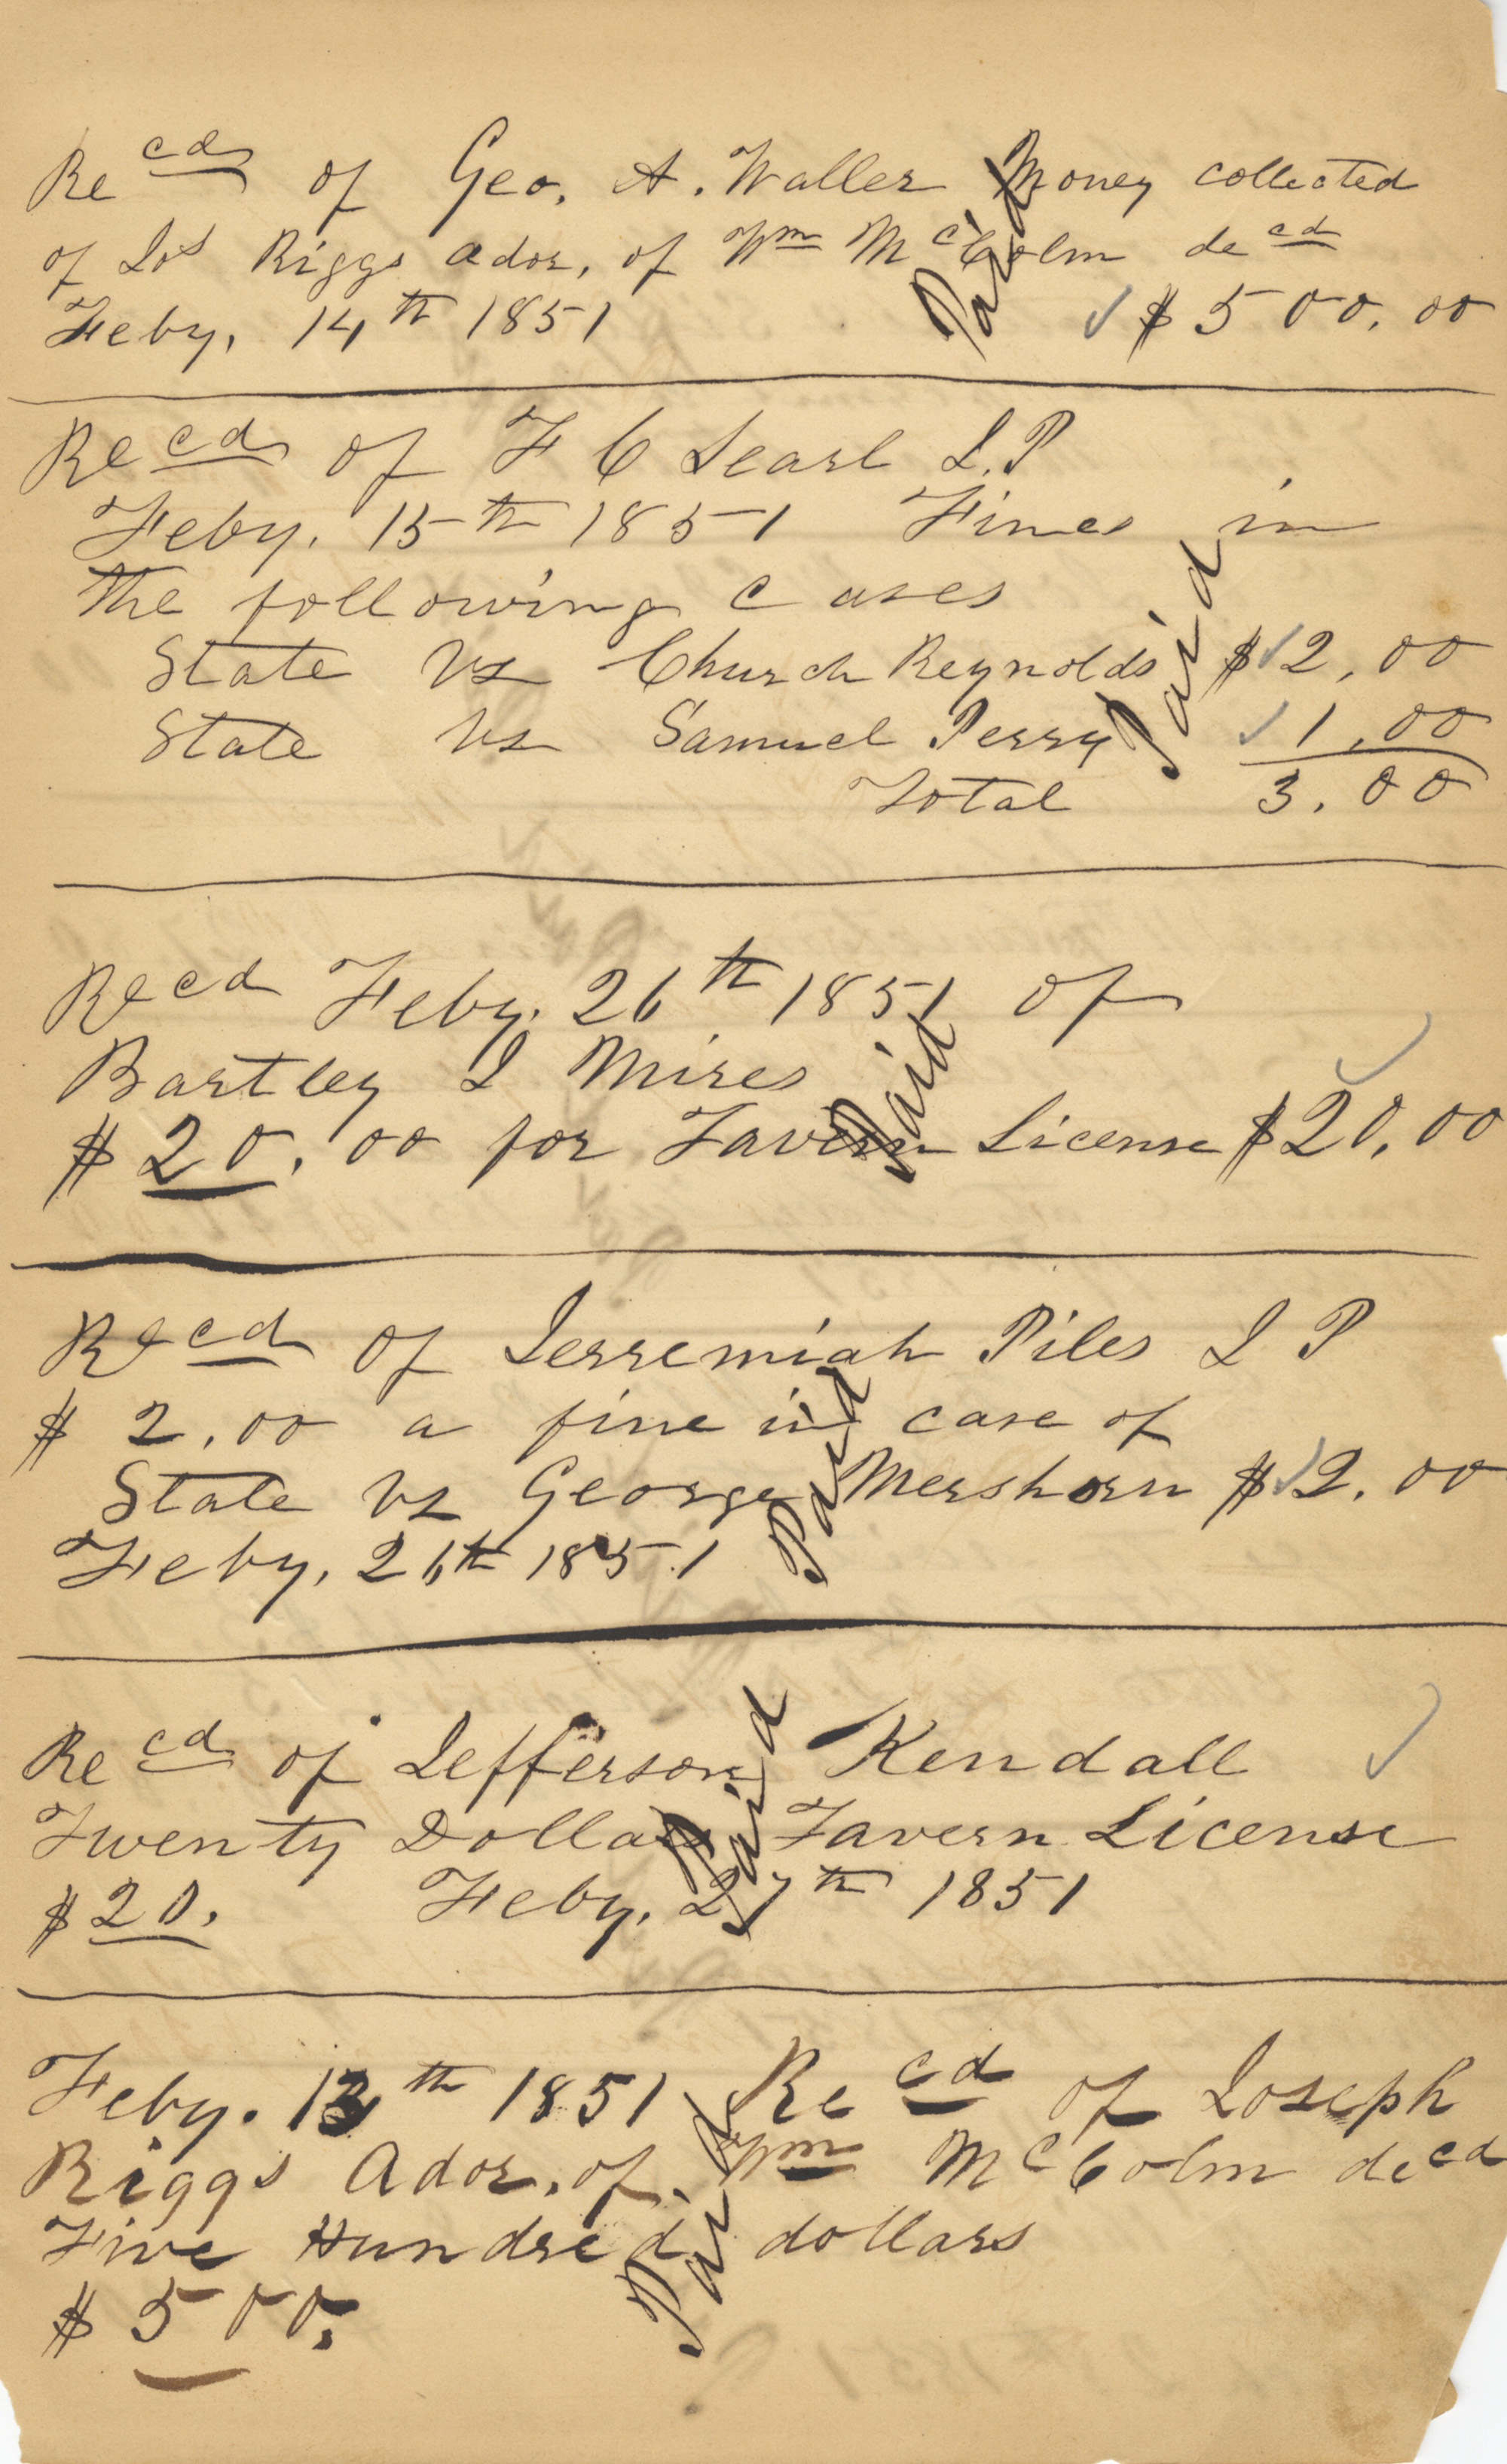 Recd of Geo. A. Waller Money collected
of Jos Riggs Ador. of Wm McColm decd
Feby. 14th 1851 Paid $500.00
Recd of F C Searl J.P
Feby. 15th 1851 Fines in
the following cases
State vs Church Reynolds $2.00
State vs Samuel Perry Paid 1.00
Total 3.00
Recd Feby. 26th 1851 of
Bartley J Mires
$20.00 for Tavern License $20.00
Paid
Recd of Jerremiah Piles J P
$2.00 a fine in case of
State vs George Mershorn $2.00
Feby. 26th 1851 Paid
Recd of Jefferson Kendall
Twenty Dollars Tavern License
$20. Feby. 27th 1851
Paid
Feby. 13th 1851 Recd of Joseph
Riggs Ador. of Wm McColm decd
Five Hundred dollars
$500.
Paid